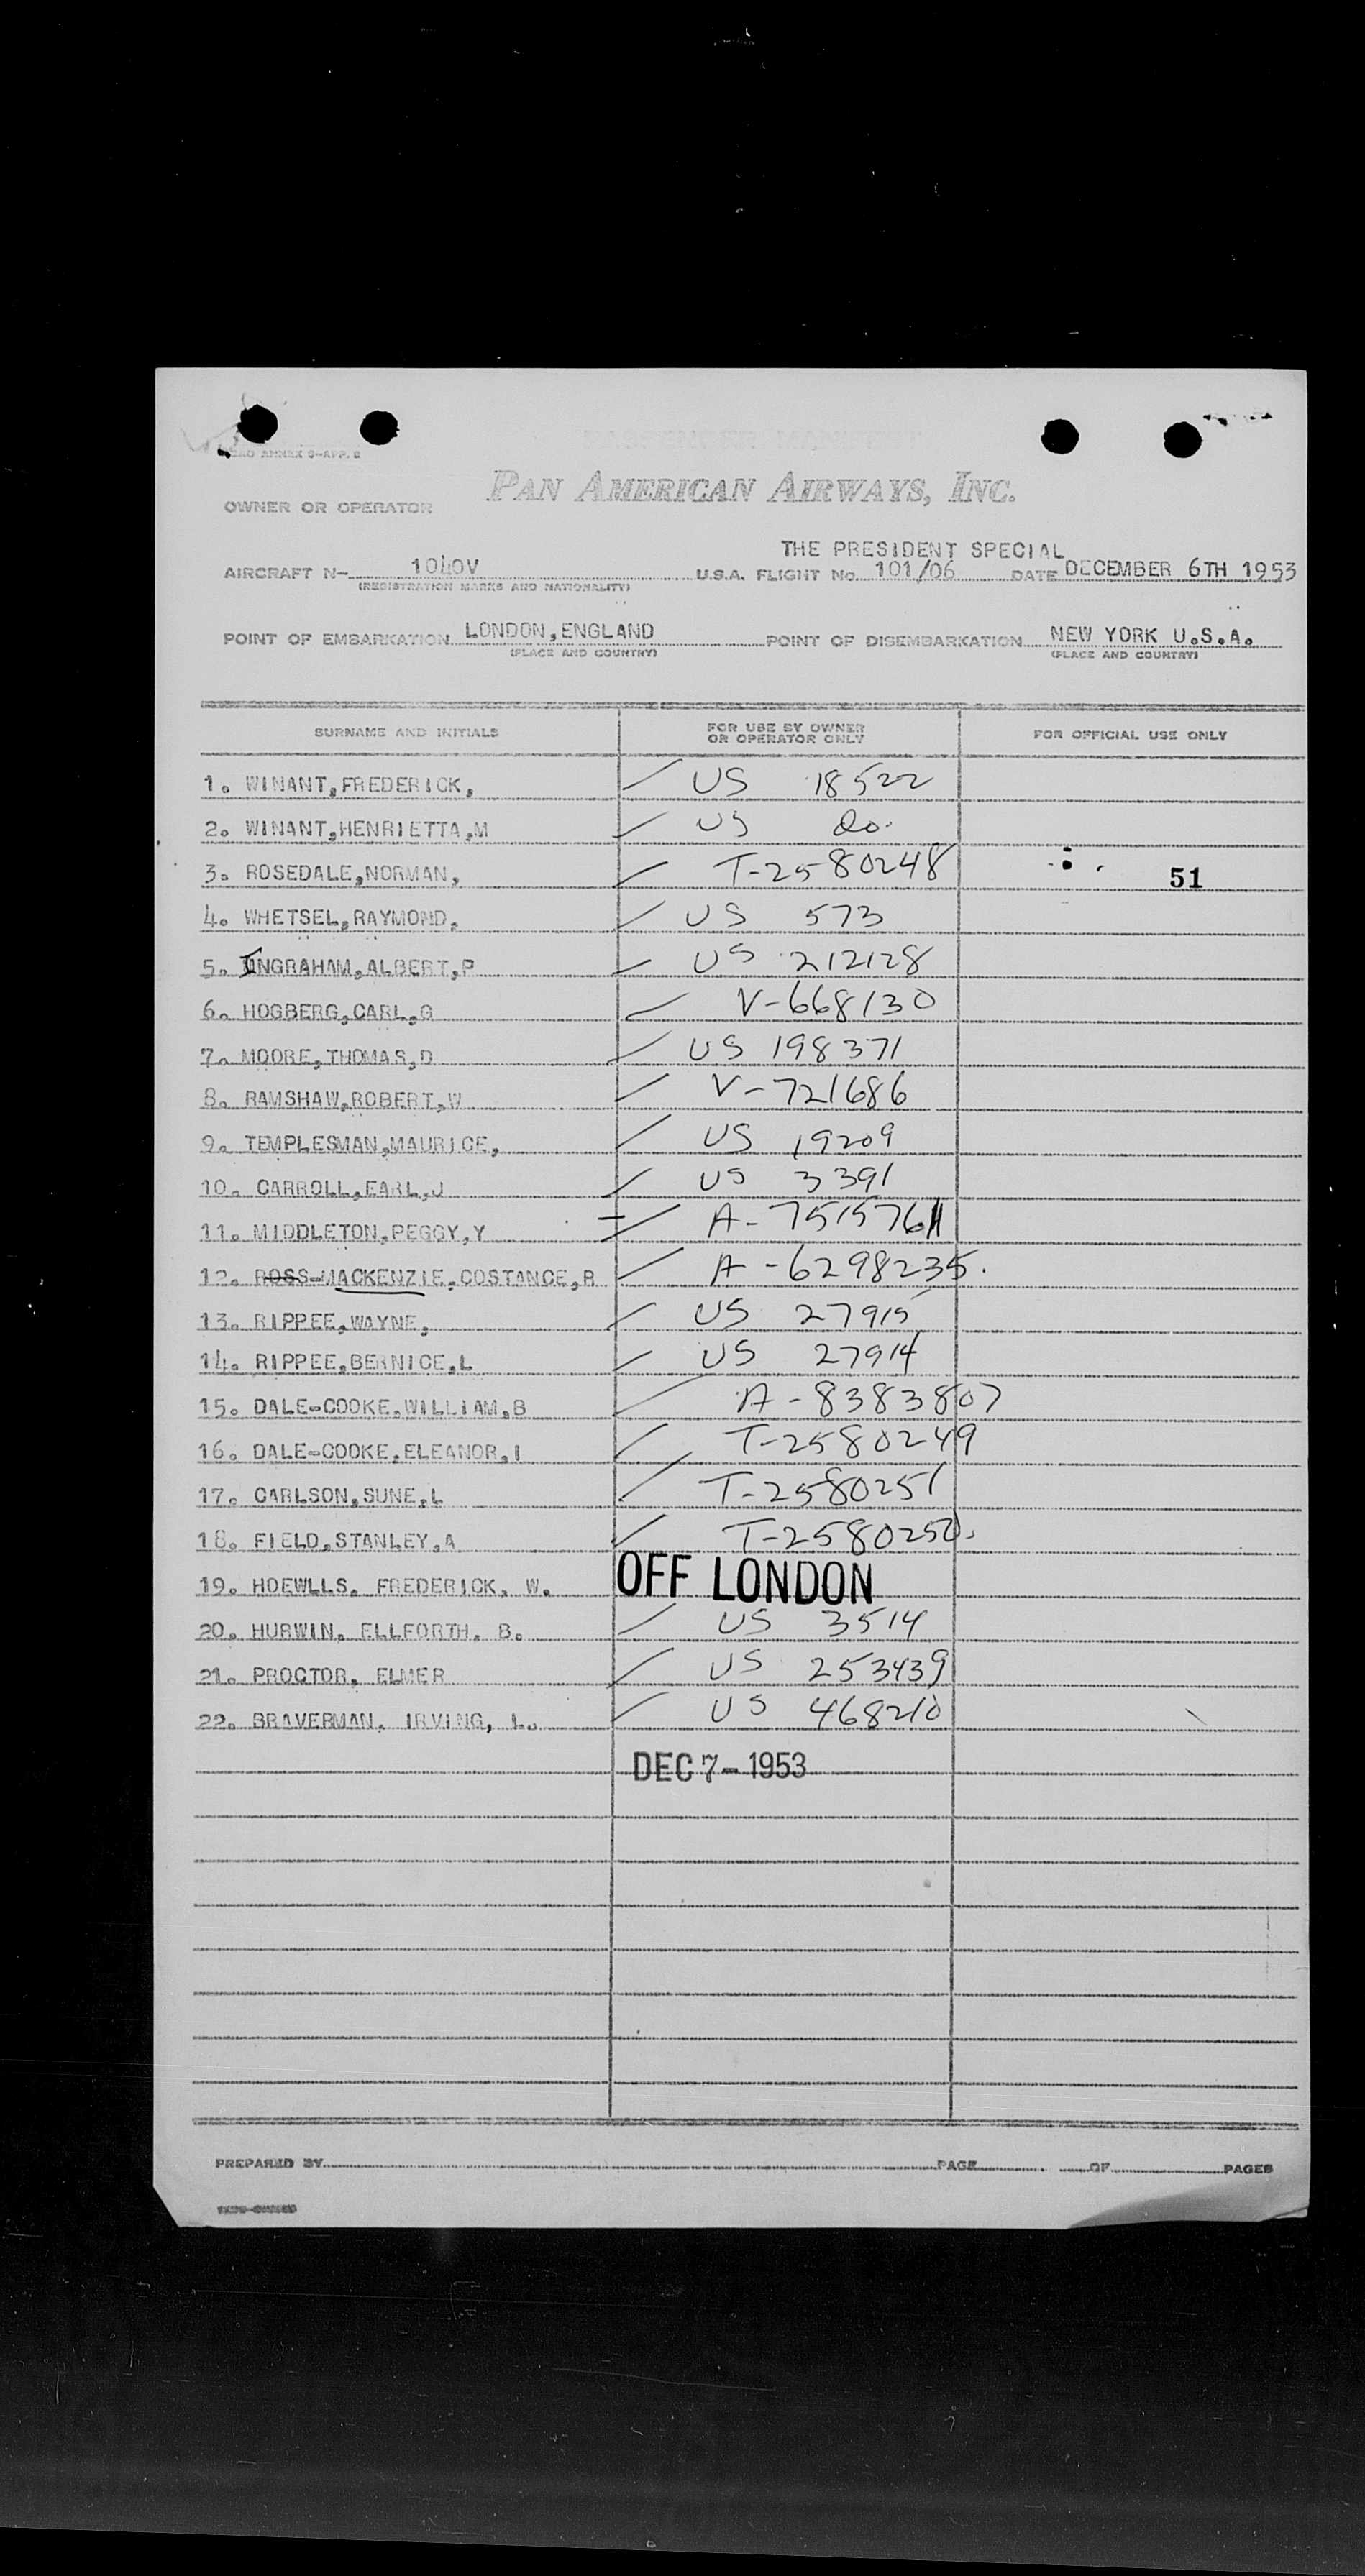 ICAO ANNEX 9-APP. 2
OWNER OR OPERATOR PAN AMERICAN AIRWAYS, INC.
THE PRESIDENT SPECIAL
AIRCRAFT N- 1040V U.S.A. FLIGHT No. 101/06 DATE DECEMBER 6TH 1953
(REGISTRATION MARKS AND NATIONALITY)
POINT OF EMBARKATION LONDON, ENGLAND POINT OF DISEMBARKATION NEW YORK U.S.A.
(PLACE AND COUNTRY) (PLACE AND COUNTRY)
SURNAME AND INITIALS FOR USE BY OWNER OR OPERATOR ONLY FOR OFFICIAL USE ONLY
1. WINANT,FREDERICK, US 18522
2. WINANT,HENRIETTA,M US Do.
3. ROSEDALE,NORMAN, T-2580248 51
4. WHETSEL,RAYMOND, US 573
5. INGRAHAM,ALBERT,P US 212128
6. HOGBERG,CARL,G V-668130
7. MOORE,THOMAS,D US 198371
8. RAMSHAW,ROBERT,W V-721686
9. TEMPLESMAN,MAURICE, US 19209
10. CARROLL,EARL,J US 3391
11. MIDDLETON,PEGGY,Y A-7515761
12. ROSS-MACKENZIE,COSTANCE,R A-6298235.
13. RIPPEE,WAYNE, US 27915
14. RIPPEE,BERNICE,L US 27914
15. DALE-COOKE,WILLIAM,B A-8383807
16. DALE-COOKE,ELEANOR,I T-2580249
17. CARLSON,SUNE,L T-2580251
18. FIELD,STANLEY,A T-2580250.
19. HOEWLLS, FREDERICK, W. OFF LONDON
20. HURWIN, ELLFORTH. B. US 3514
21. PROCTOR, ELMER US 253439
22. BRAVERMAN, IRVING, L. US 468210
DEC 7-1953
PREPARED BY PAGE OF PAGES